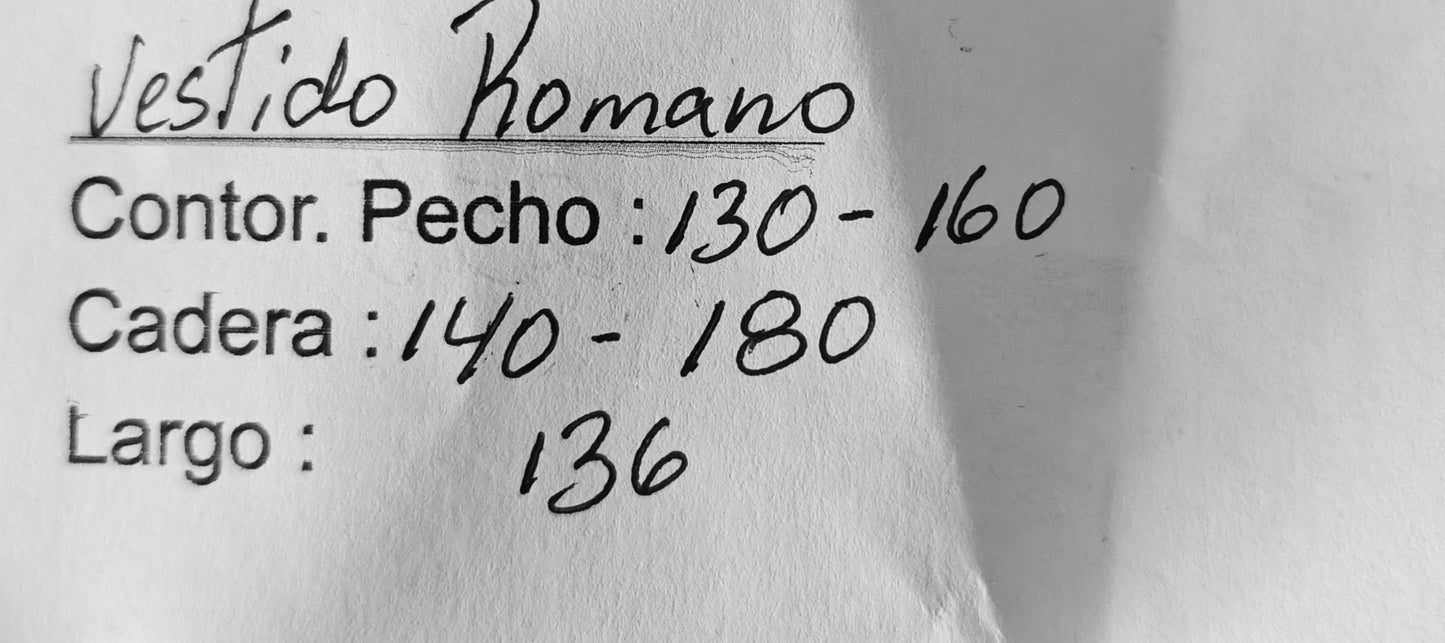 Vestido Romano
Contor. Pecho : 130 - 160
Cadera : 140 - 180
Largo : 136